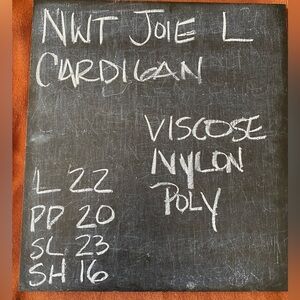 NWT JOIE L
CARDIGAN
VISCOSE
NYLON
POLY
L 22
PP 20
SL 23
SH 16